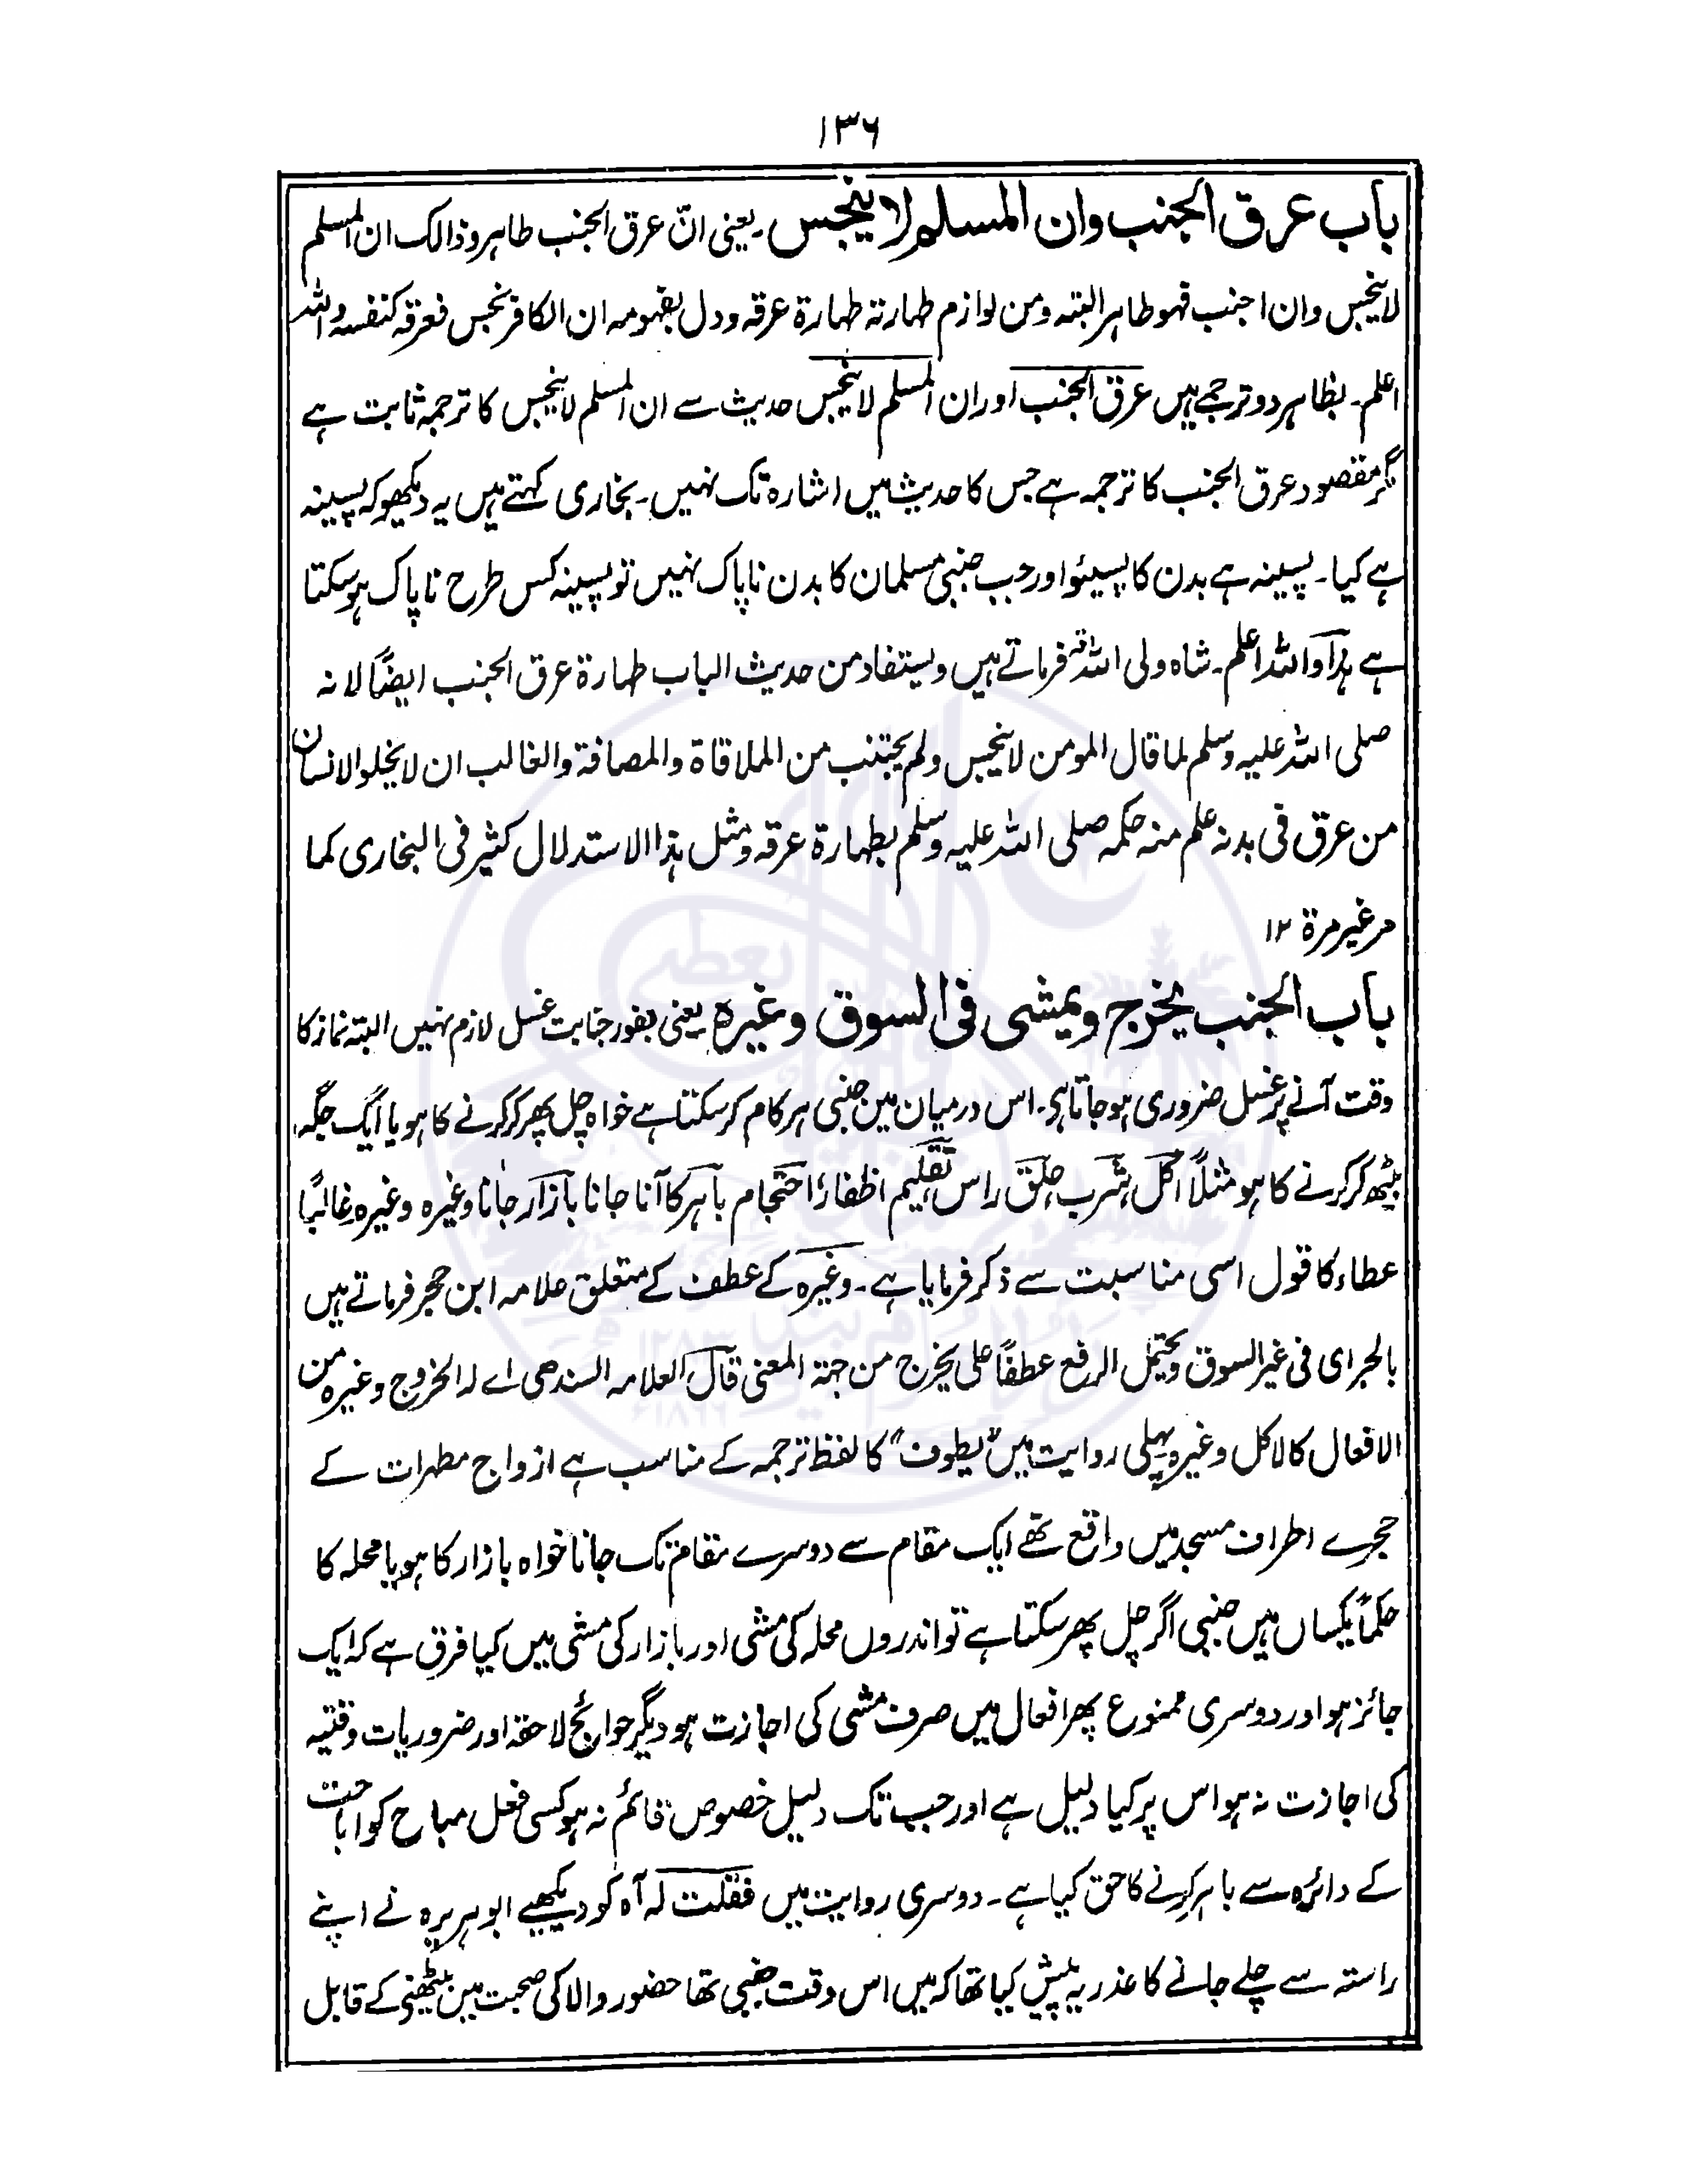 ۱۳۶
باب عرق الجنب وان المسلم لا ینجس۔ یعنی انّ عرق الجنب طاہر وذالک ان المسلم
لا ینجس وان اجنب فھو طاہر البتہ ومن لوازم طہارتہ طہارۃ عرقہ ودل بمفہومہ ان الکافر نجس فعرقہ کنفسہ واللہ
اعلم۔ بظاہر دو ترجمے ہیں عرق الجنب اور ان المسلم لا ینجس حدیث سے ان المسلم لا ینجس کا ترجمہ ثابت ہے
مگر مقصود عرق الجنب کا ترجمہ ہے جس کا حدیث میں اشارہ تک نہیں۔ بخاری کہتے ہیں یہ دیکھو کہ پسینہ
ہے کیا۔ پسینہ ہے بدن کا پسیئو اور جب جنبی مسلمان کا بدن ناپاک نہیں تو پسینہ کس طرح ناپاک ہوسکتا
ہے ہذا واللہ اعلم۔ شاہ ولی اللہؒ فرماتے ہیں ویستفاد من حدیث الباب طہارۃ عرق الجنب ایضاً لانہ
صلی اللہ علیہ وسلم لما قال المومن لا ینجس ولم یجتنب من الملاقاۃ والمصافۃ والغالب ان لا یخلو الانسان
من عرق فی بدنہ علم منہ حکمہ صلی اللہ علیہ وسلم بطہارۃ عرقہ ومثل ہذا الاستدلال کثیر فی البخاری کما
مر غیر مرۃ ۱۲
باب الجنب یخرج ویمشی فی السوق وغیرہ یعنی بفور جنابت غسل لازم نہیں البتہ نماز کا
وقت آنے پر غسل ضروری ہوجاتا ہے۔ اس درمیان میں جنبی ہر کام کرسکتا ہے خواہ چل پھر کر کرنے کا ہو یا ایک جگہ
بیٹھ کر کرنے کا ہو مثلاً اکل شرب حلق راس تقلیم اظفار احتجام باہر کا آنا جانا بازار جانا وغیرہ وغیرہ غالباً
عطاء کا قول اسی مناسبت سے ذکر فرمایا ہے۔ وغیرہ کے عطف کے متعلق علامہ ابن حجر فرماتے ہیں
بالجر ای فی غیر السوق ویحتمل الرفع عطفاً علی یخرج من جہۃ المعنی قال العلامہ السندھی اے لہ الخروج وغیرہ من
الافعال کالاکل وغیرہ پہلی روایت میں "یطوف" کا لفظ ترجمہ کے مناسب ہے ازواج مطہرات کے
حجرے اطراف مسجد میں واقع تھے ایک مقام سے دوسرے مقام تک جانا خواہ بازار کا ہو یا محلہ کا
حکماً یکساں ہیں جنبی اگر چل پھر سکتا ہے تو اندروں محلہ کی مشی اور بازار کی مشی میں کیا فرق ہے کہ ایک
جائز ہو اور دوسری ممنوع پھر افعال میں صرف مشی کی اجازت ہو دیگر حوائج لاحقہ اور ضروریات وقتیہ
کی اجازت نہ ہو اس پر کیا دلیل ہے اور جب تک دلیل خصوص قائم نہ ہو کسی فعل مباح کو اباحت
کے دائرہ سے باہر کرنے کا حق کیا ہے۔ دوسری روایت میں فقلت لہ آہ کو دیکھیے ابوہریرہ نے اپنے
راستہ سے چلے جانے کا عذر یہ پیش کیا تھا کہ میں اس وقت جنبی تھا حضور والا کی صحبت میں بیٹھنے کے قابل